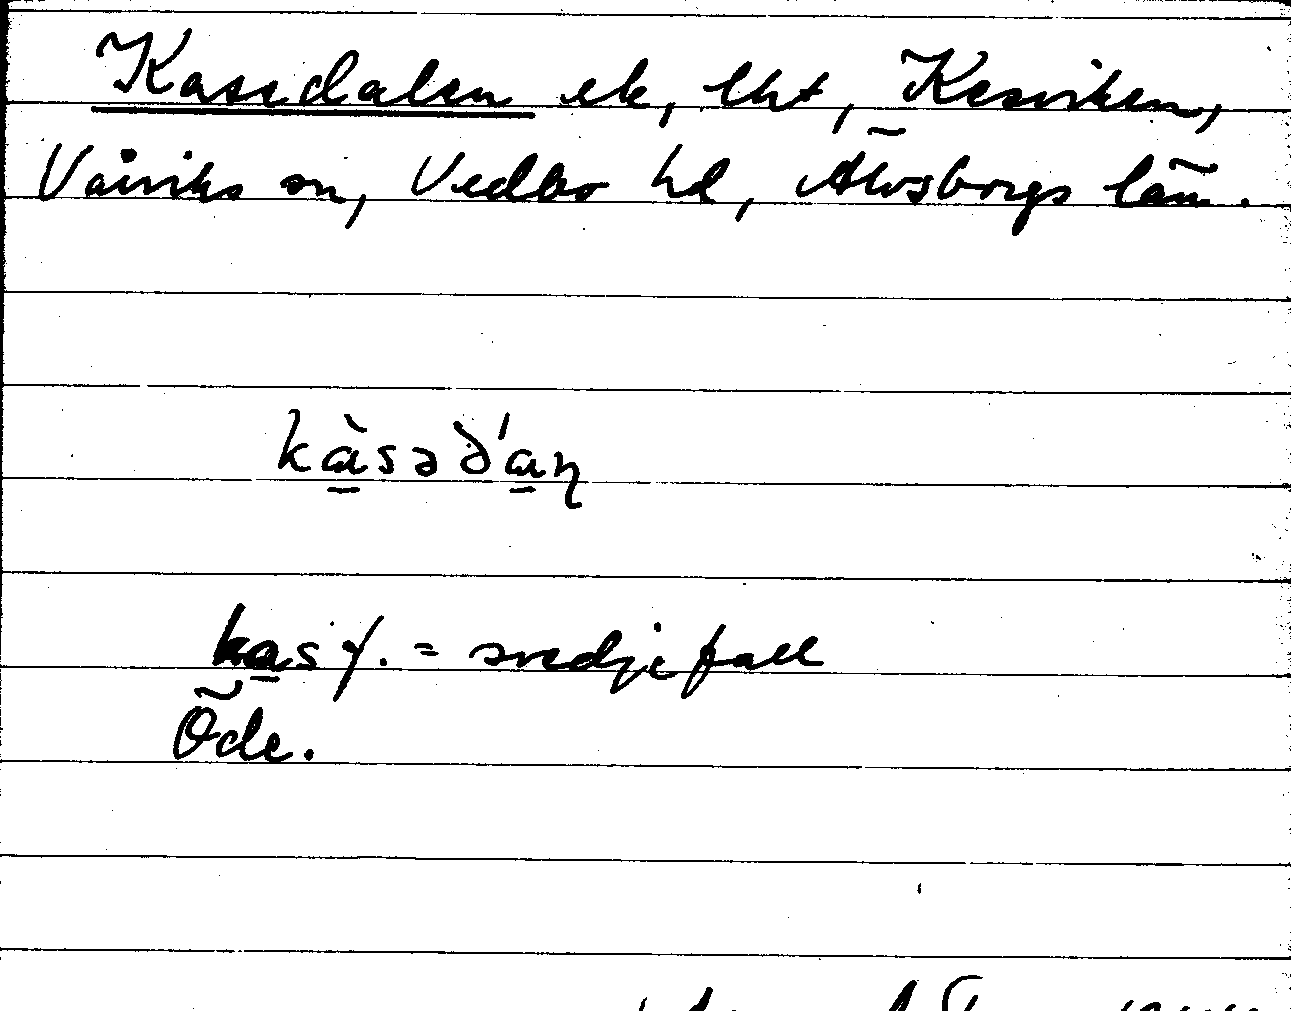 Kasedalen ek, lht, Kesviken,
Vårviks sn, Vedbo hd, Älvsborgs län.
kàsəðˈaꞃ
kas f. = svedjefall
Öde.